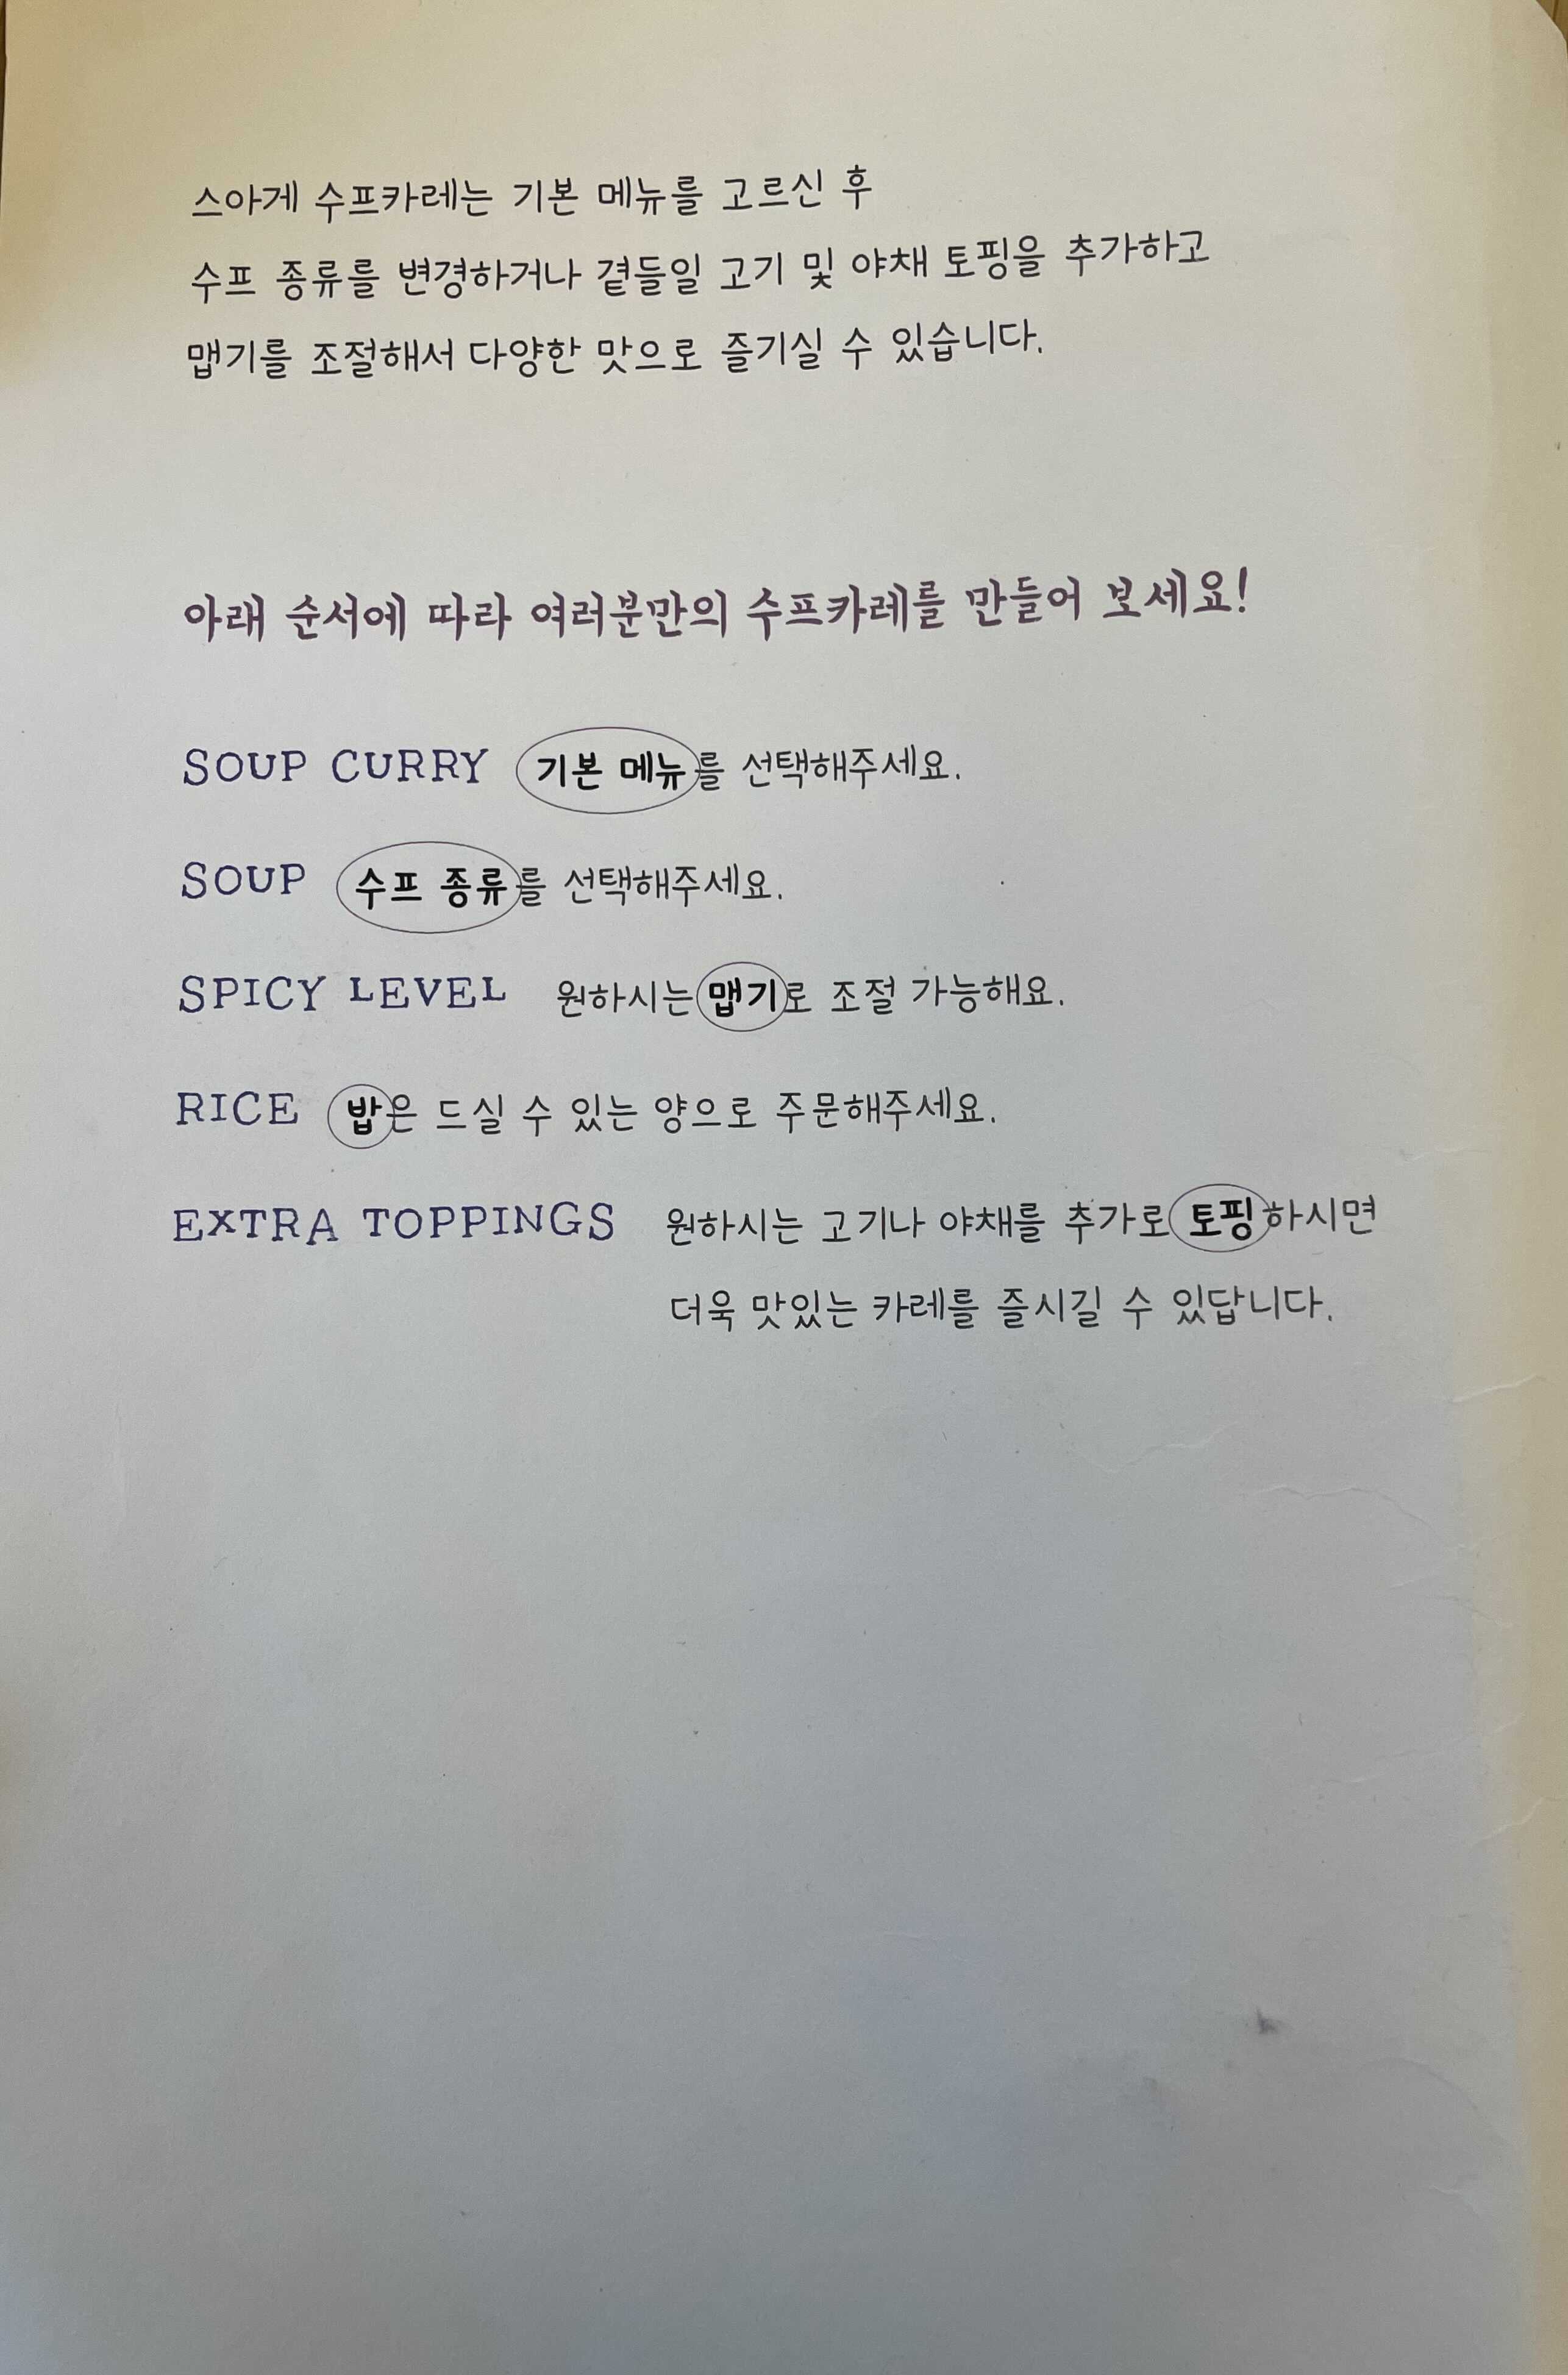 스아게 수프카레는 기본 메뉴를 고르신 후
수프 종류를 변경하거나 곁들일 고기 및 야채 토핑을 추가하고
맵기를 조절해서 다양한 맛으로 즐기실 수 있습니다.
아래 순서에 따라 여러분만의 수프카레를 만들어 보세요!
SOUP CURRY 기본 메뉴를 선택해주세요.
SOUP 수프 종류를 선택해주세요.
SPICY LEVEL 원하시는 맵기로 조절 가능해요.
RICE 밥은 드실 수 있는 양으로 주문해주세요.
EXTRA TOPPINGS 원하시는 고기나 야채를 추가로 토핑하시면
더욱 맛있는 카레를 즐시길 수 있답니다.